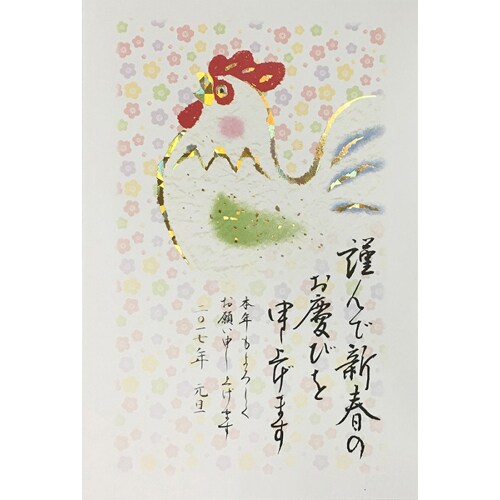 謹んで新春の
お慶びを
申し上げます
本年もよろしく
お願い申し上げます
二〇一七年 元旦